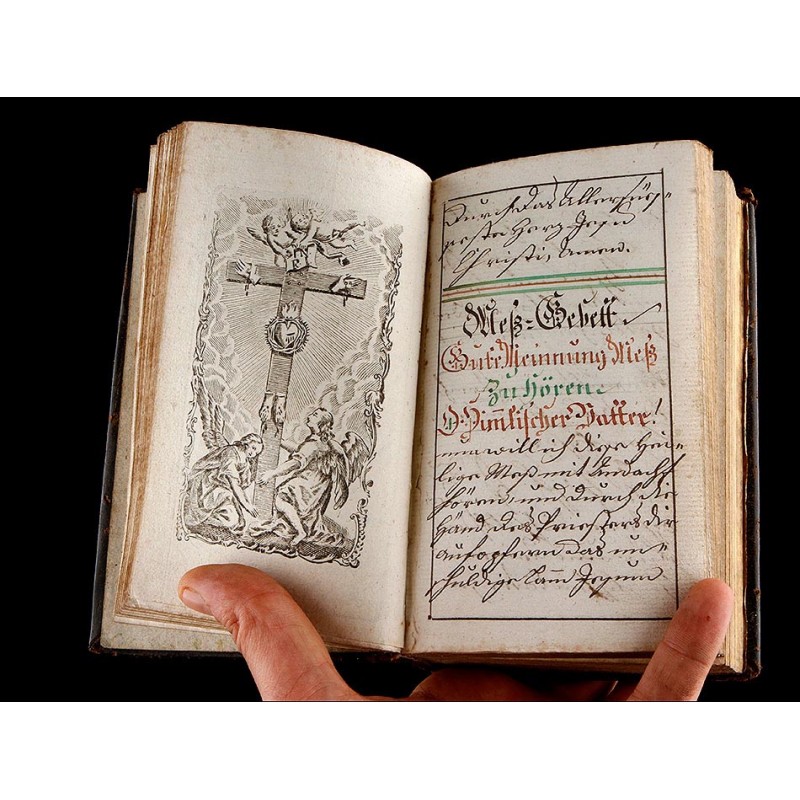 Durch das Allersüs-
seste Herz Jesu
Christi, Amen.
Meß-Gebett
Gute Meinnung Meß
zu hören.
O Him̅lischer Vatter!
nun will ich diese Hei-
lige Meß mit Andacht
hören, und durch die
Händ des Priesters dir
aufopfern das un-
schuldige Lam̅ Jesum